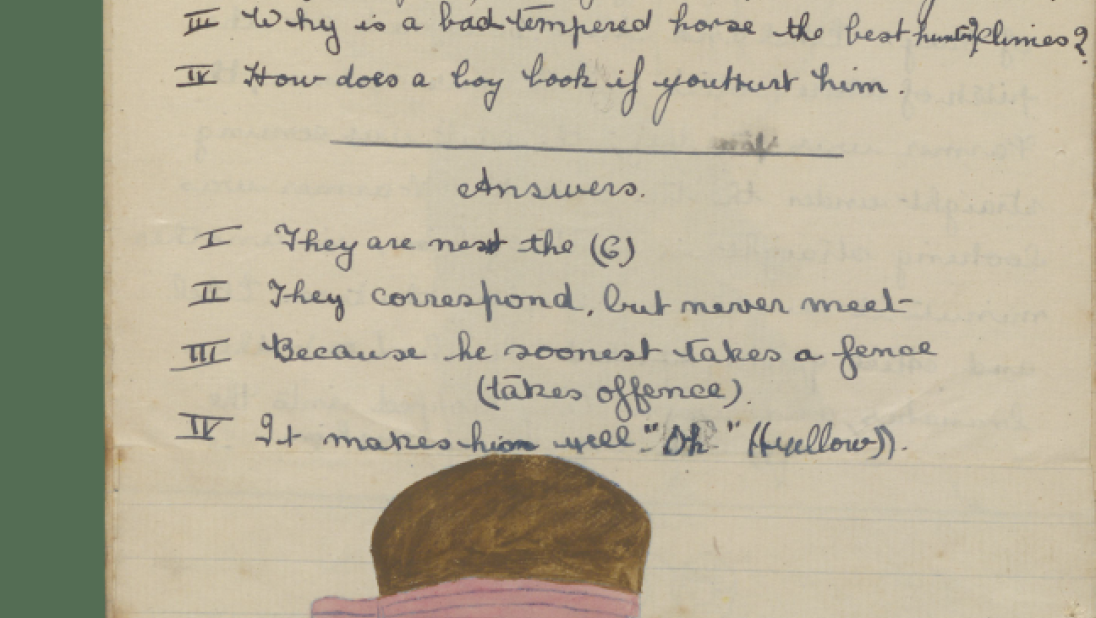 III Why is a bad tempered horse the best hunter climes?
IV How does a boy look if you hurt him
Answers.
I They are next the (C)
II They correspond, but never meet
III Because he soonest takes a fence
(takes offence).
IV It makes him yell "Oh" ((yellow)).